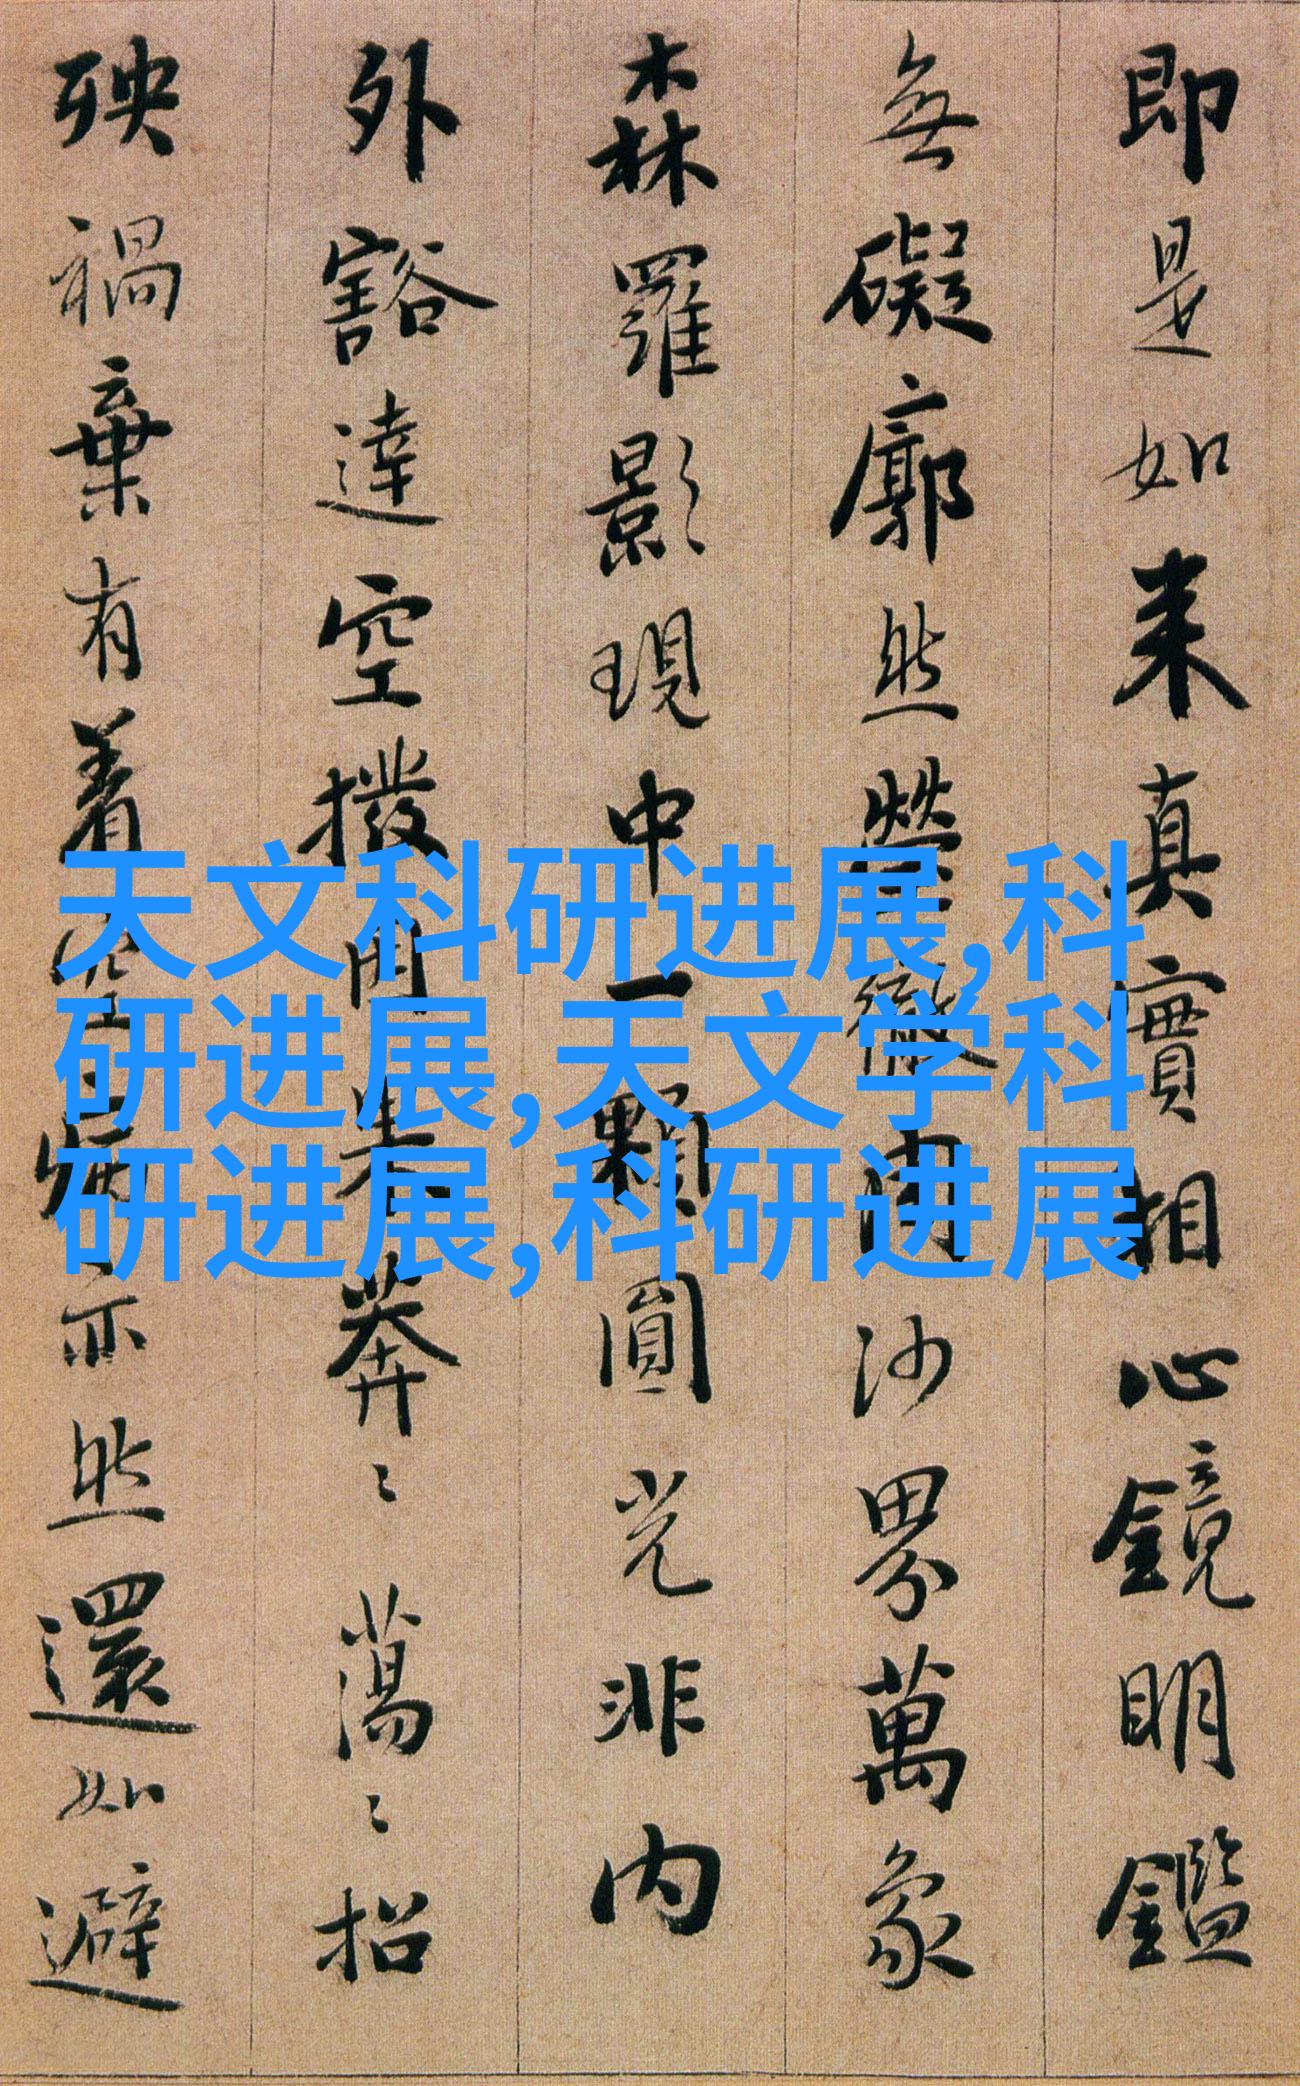 即是如来真實相心鏡明鑑
無礙廓然瑩徹周沙界萬象
森羅影現中一顆圓光非内
外豁達空撥因果莽〻蕩〻招
殃禍棄有着空病亦然還如避
天文科研进展,科
研进展,天文学科
研进展,科研进展